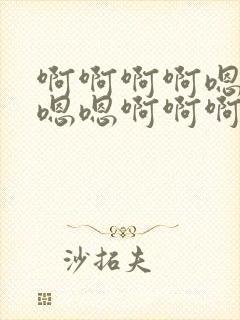 啊啊啊啊嗯
嗯嗯啊啊啊
沙拓夫